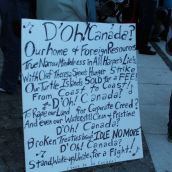 D'Oh! Canada?
Our home & Foreign Resources
True Narrow Mindedness In All Harper's Lies
With Chief Theresa Spence Hunger Strike
Our Turtle Island's SOLD for a FEE!
From Coast to Coast!
D'Oh! Canada?
To Rape our Land for Corporate Greed?
And even our Waters Still Clean & Pristine
D'Oh! Canada?
Broken Treaties and IDLE NO MORE
D'Oh! Canada?
Stand, Wake up, Unite, for a Fight!